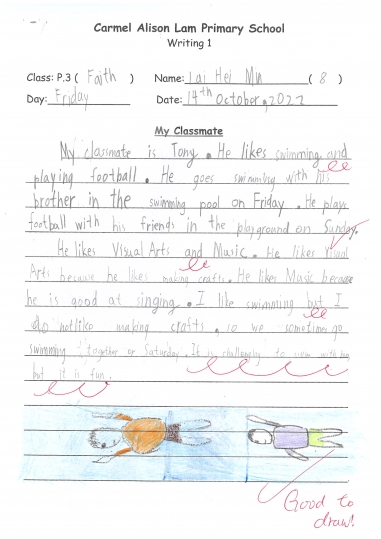 Carmel Alison Lam Primary School
Writing 1
Class: P.3 ( Faith ) Name: Lai Hei Mu ( 8 )
Day: Friday Date: 14th October, 2022
My Classmate
My classmate is Tony. He likes swimming and
playing football. He goes swimming with his
brother in the swimming pool on Friday. He plays
football with his friends in the playground on Sunday.
He likes Visual Arts and Music. He likes Visual
Arts because he likes making crafts. He likes Music because
he is good at singing. I like swimming but I
do not like making crafts, so we sometimes go
swimming together on Saturday. It is challenging to swim with him
but it is fun.
Good to
draw!